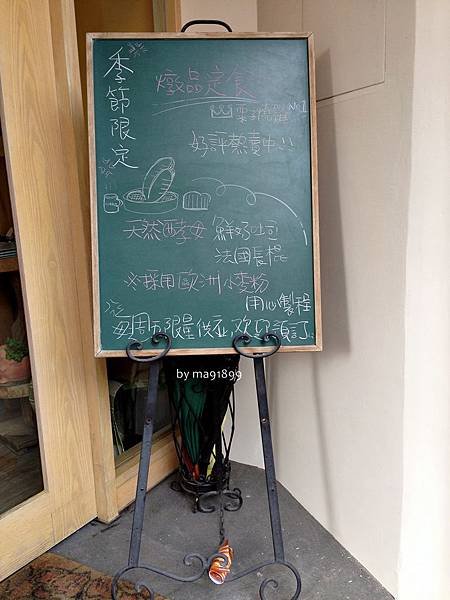 季節限定
燉品定食
栗子燒雞 No.1
好評熱賣中!!
天然酵母 鮮奶吐司
法國長棍
※採用歐洲小麥粉
用心製程
每周五限量供應,歡迎預訂
by ma91899